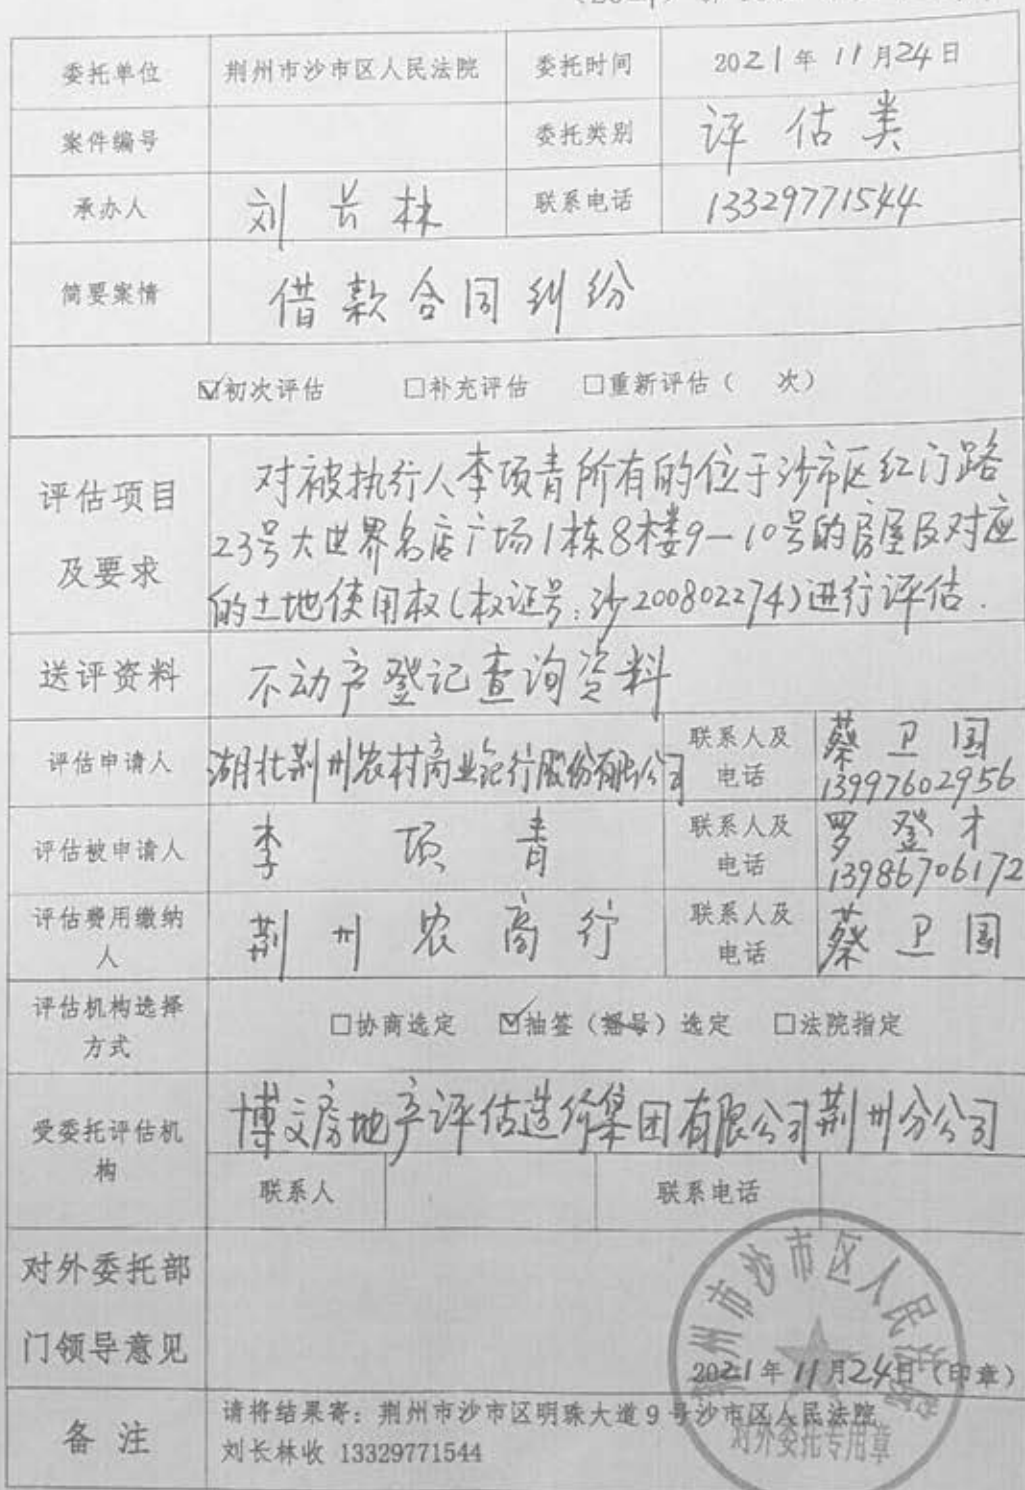 委托单位 荆州市沙市区人民法院 委托时间 2021年11月24日
案件编号 委托类别 评估类
承办人 刘长林 联系电话 13329771544
简要案情 借款合同纠纷
☑初次评估 □补充评估 □重新评估( 次)
评估项目
及要求
对被执行人李项青所有的位于沙市区红门路
23号大世界名店广场1栋8楼9-10号的房屋及对应
的土地使用权(权证号:沙200802274)进行评估.
送评资料 不动产登记查询资料
评估申请人 湖北荆州农村商业银行股份有限公司 联系人及
电话 蔡卫国
13997602956
评估被申请人 李项青 联系人及
电话 罗登才
13986706172
评估费用缴纳
人 荆州农商行 联系人及
电话 蔡卫国
评估机构选择
方式 □协商选定 ☑抽签(摇号)选定 □法院指定
受委托评估机
构 博文房地产评估造价集团有限公司荆州分公司
联系人 联系电话
对外委托部
门领导意见
荆州市沙市区人民法院
2021年11月24日(印章)
对外委托专用章
备注 请将结果寄:荆州市沙市区明珠大道9号沙市区人民法院
刘长林收 13329771544